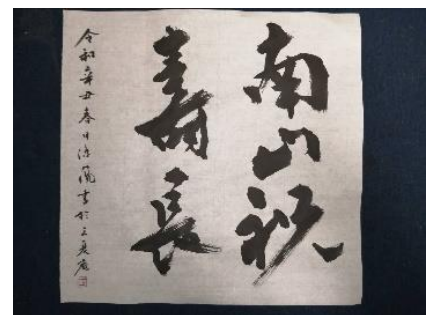 南山祝
壽長
令和辛丑春日清風書於三夏庵